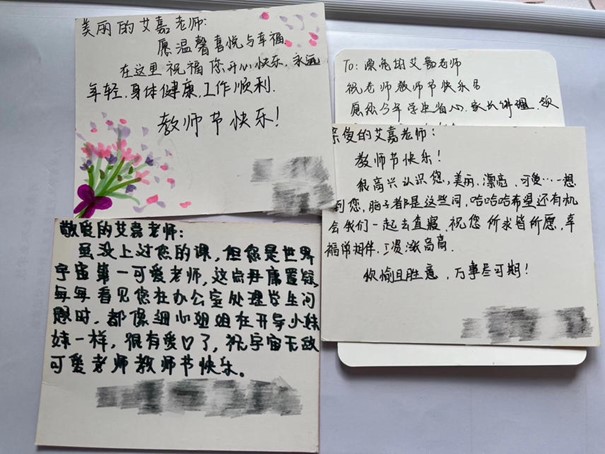 美丽的艾嘉老师:
愿温馨喜悦与幸福
在这里祝福你开心快乐,永远
年轻,身体健康,工作顺利.
教师节快乐!
To:漂亮的艾嘉老师
祝老师教师节快乐
愿你今年学生省心,家长讲理,
亲爱的艾嘉老师:
教师节快乐!
很高兴认识您,美丽、漂亮、可爱…一想
到您,脑子都是这些词,哈哈哈希望还有机
会我们一起去直播,祝您所求皆所愿,幸
福常相伴,工资涨高高.
你愉且胜意,万事尽可期!
敬爱的艾嘉老师:
虽没上过您的课,但您是世界
宇宙第一可爱老师,这点毋庸置疑
每每看见您在办公室处理学生问
题时,都像细心姐姐在开导小妹
妹一样,很有爱♡了,祝宇宙无敌
可爱老师教师节快乐。